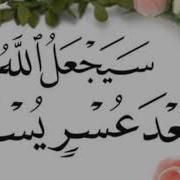 سَيَجْعَلُ ٱللَّهُ
عْدَ عُسْرٍ يُسْ